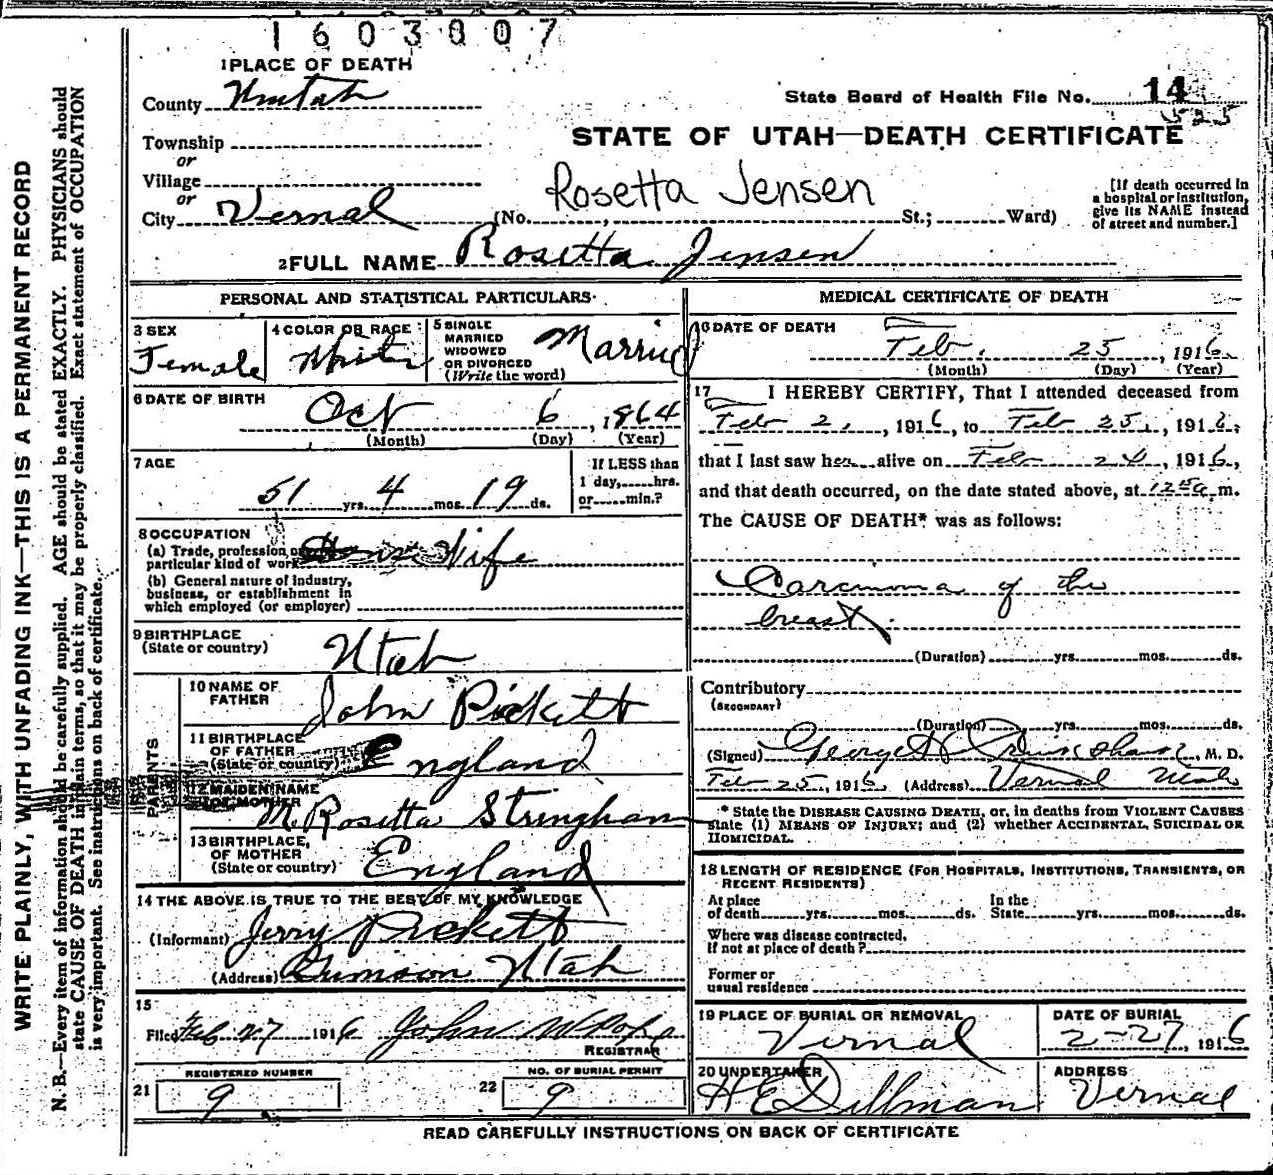 1603007
1 PLACE OF DEATH
County Uintah
State Board of Health File No. 14
525
Township
or
Village
or
City Vernal
STATE OF UTAH—DEATH CERTIFICATE
Rosetta Jensen
(No. , St.; Ward)
[If death occurred in a hospital or institution, give its NAME instead of street and number.]
2 FULL NAME Rosetta Jensen
PERSONAL AND STATISTICAL PARTICULARS
3 SEX
Female
4 COLOR OR RACE
White
5 SINGLE
MARRIED
WIDOWED
OR DIVORCED
(Write the word)
Married
6 DATE OF BIRTH
Oct 6, 1864
(Month) (Day) (Year)
7 AGE
51 yrs. 4 mos. 19 ds.
If LESS than
1 day, hrs.
or min.?
8 OCCUPATION
(a) Trade, profession, or
particular kind of work House Wife
(b) General nature of industry,
business, or establishment in
which employed (or employer)
9 BIRTHPLACE
(State or country)
Utah
PARENTS
10 NAME OF
FATHER
John Pickett
11 BIRTHPLACE
OF FATHER
(State or country)
England
12 MAIDEN NAME
OF MOTHER
M. Rosetta Stringham
13 BIRTHPLACE,
OF MOTHER
(State or country)
England
14 THE ABOVE IS TRUE TO THE BEST OF MY KNOWLEDGE
(Informant) Jerry Pickett
(Address) Utah
15
Filed Feb 27 1916 John W Pope
REGISTRAR
REGISTERED NUMBER
21 9
NO. OF BURIAL PERMIT
22 9
MEDICAL CERTIFICATE OF DEATH
16 DATE OF DEATH
Feb. 25, 1916
(Month) (Day) (Year)
17 I HEREBY CERTIFY, That I attended deceased from
Feb 2, , 1916, to Feb 25, , 1916,
that I last saw her alive on Feb 24, 1916,
and that death occurred, on the date stated above, at m.
The CAUSE OF DEATH* was as follows:
Carcinoma of the
breast.
(Duration) yrs. mos. ds.
Contributory
(SECONDARY)
(Duration) yrs. mos. ds.
(Signed) George H , M. D.
Feb 25, 1916, (Address) Vernal Utah
* State the DISEASE CAUSING DEATH, or, in deaths from VIOLENT CAUSES
state (1) MEANS OF INJURY; and (2) whether ACCIDENTAL, SUICIDAL OR
HOMICIDAL.
18 LENGTH OF RESIDENCE (FOR HOSPITALS, INSTITUTIONS, TRANSIENTS, OR
RECENT RESIDENTS)
At place In the
of death yrs. mos. ds. State yrs. mos. ds.
Where was disease contracted,
if not at place of death?
Former or
usual residence
19 PLACE OF BURIAL OR REMOVAL
Vernal
DATE OF BURIAL
2-27, 1916
20 UNDERTAKER
H E Dillman
ADDRESS
Vernal
READ CAREFULLY INSTRUCTIONS ON BACK OF CERTIFICATE
WRITE PLAINLY, WITH UNFADING INK—THIS IS A PERMANENT RECORD
N. B.—Every item of information should be carefully supplied. AGE should be stated EXACTLY. PHYSICIANS should
state CAUSE OF DEATH in plain terms, so that it may be properly classified. Exact statement of OCCUPATION
is very important. See instructions on back of certificate.